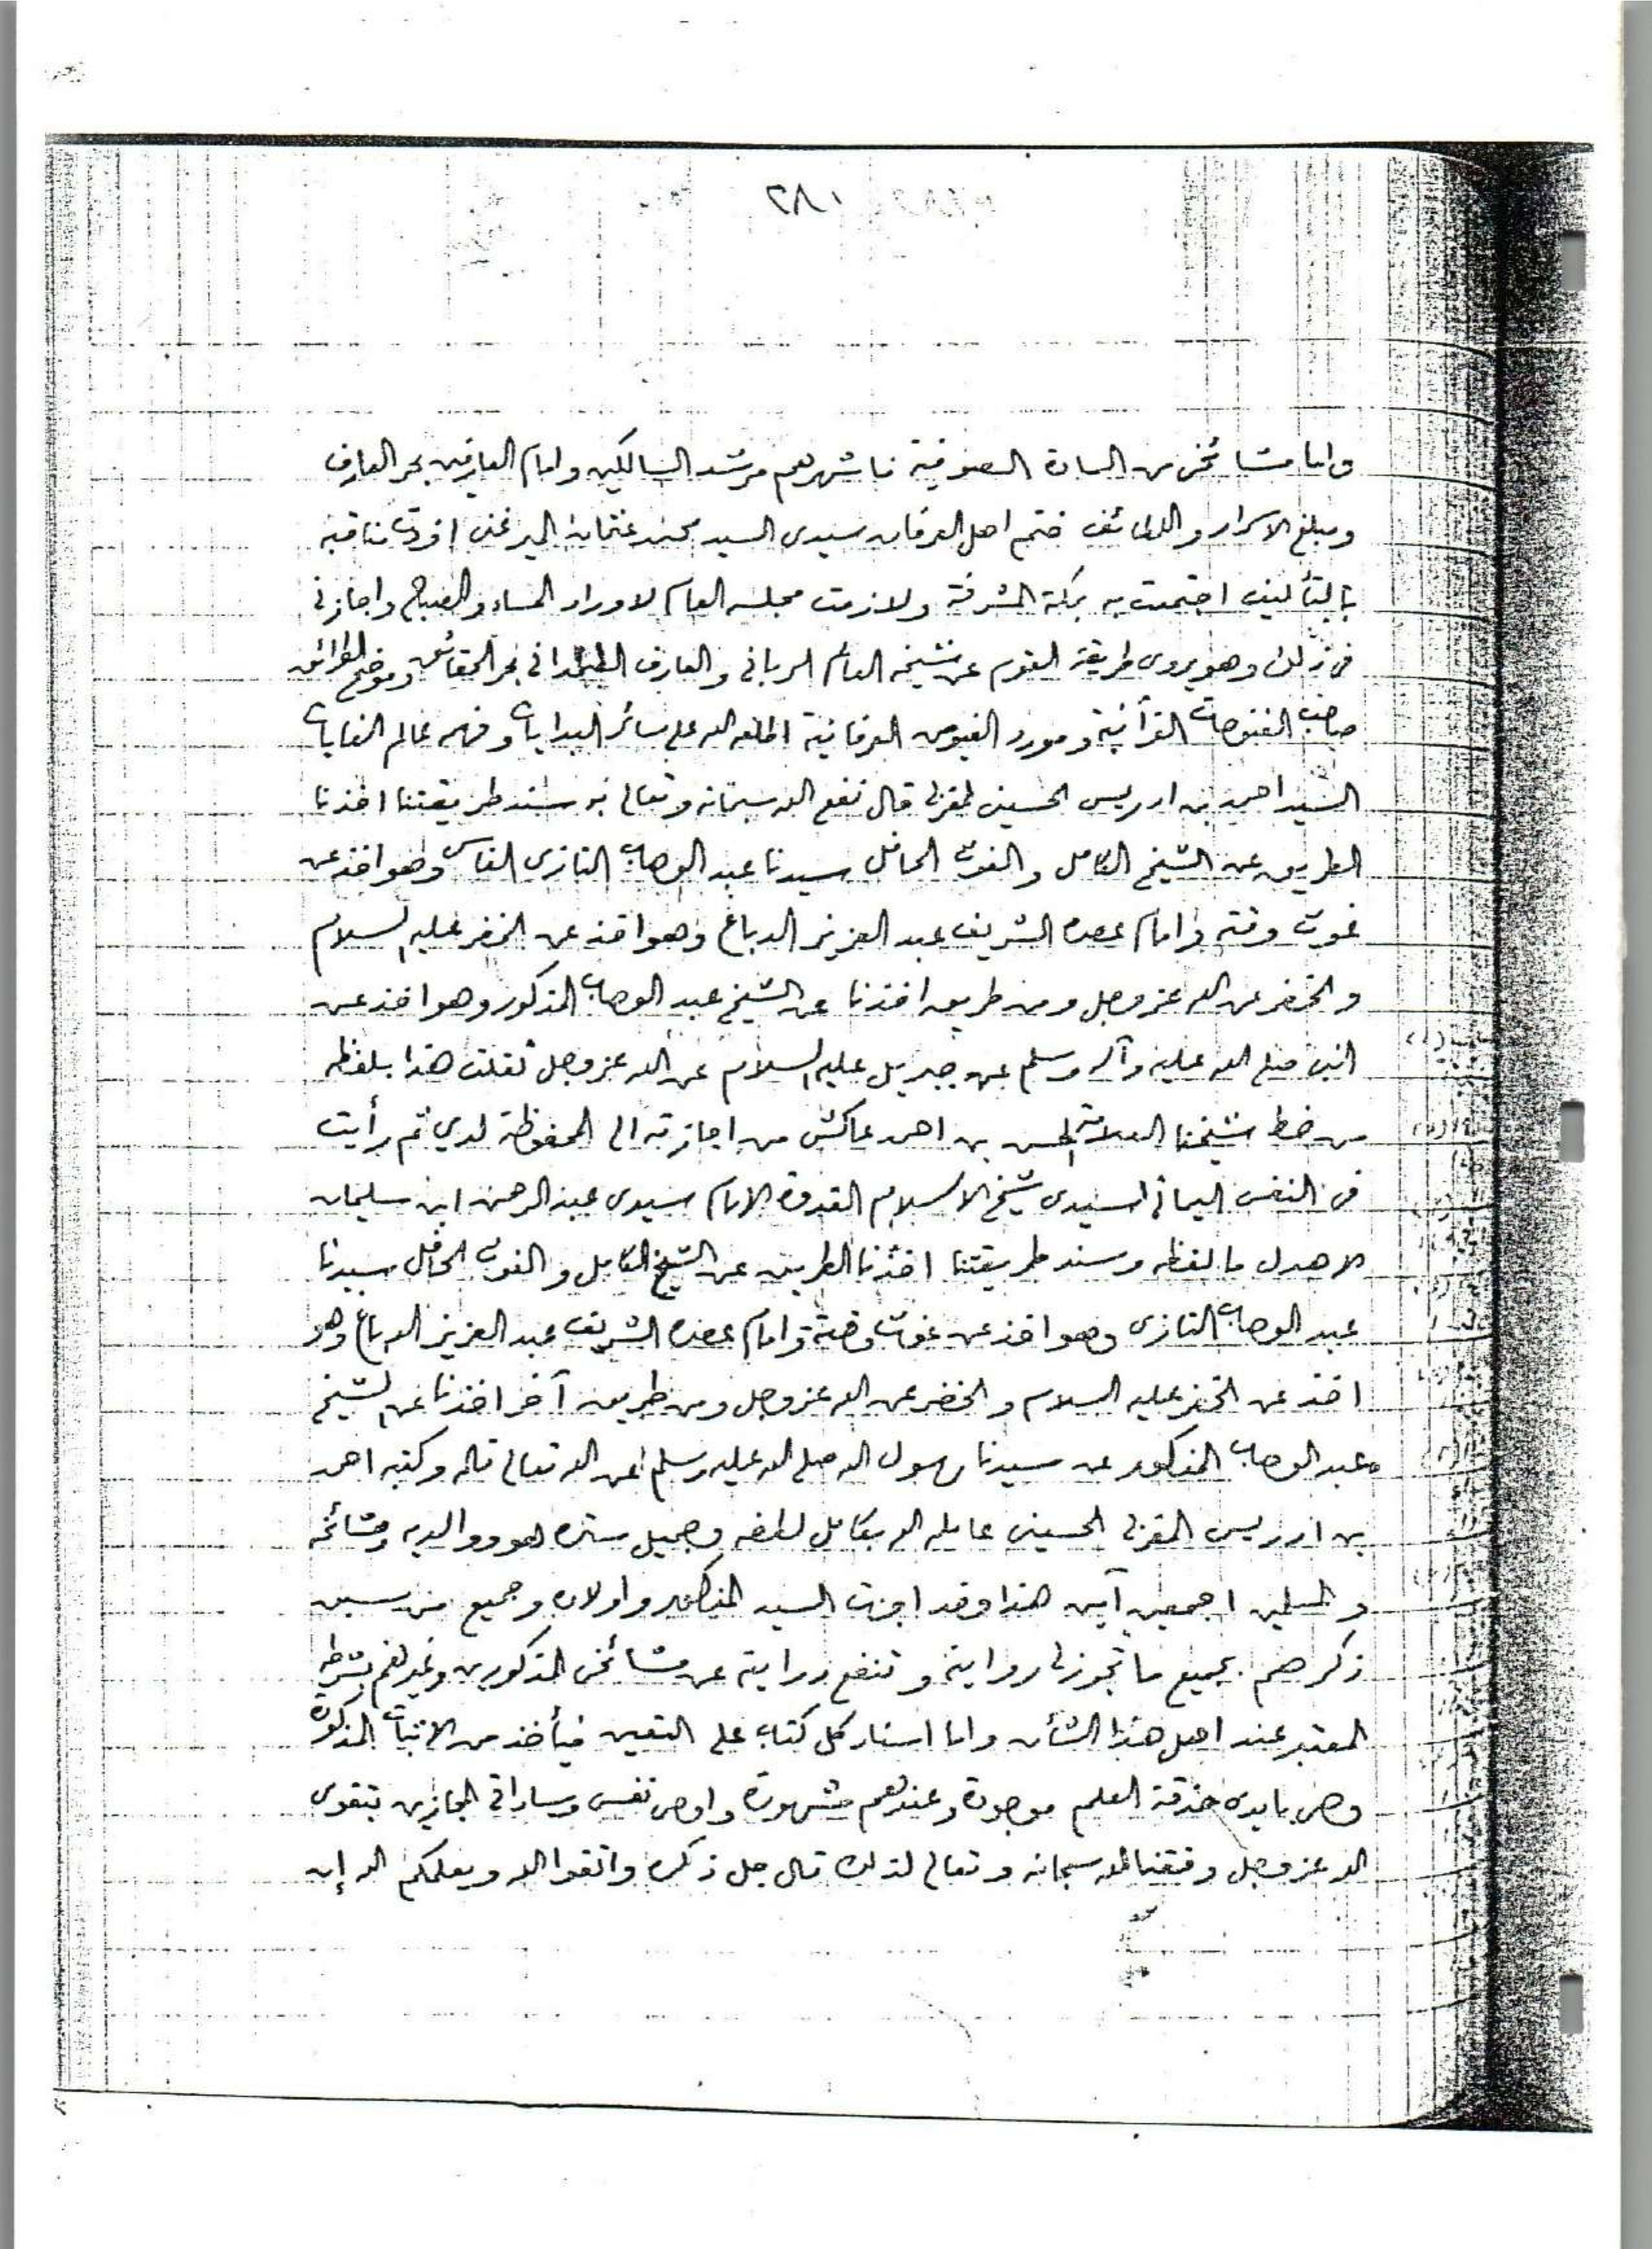 ١٨٢
واما مشائخى من السادة الصوفية فاشهرهم مرشد السالكين وامام العارفين بحر المعارف
ومبلغ الاسرار واللطائف ختم اهل العرفان سيدى السيد محمد عثمان الميرغنى افردت مناقبه
بالتأليف اجتمعت به بمكة المشرفة ولازمت مجلسه العام لاوراد المساء والصباح واجازنى
فى ذلك وهو يروى طريقة القوم عن شيخه العالم الربانى والعارف الصمدانى بحر الحقائق وموضح الطرائق
صاحب الفتوحات القرآنية ومورد الفيوض العرفانية اطلعه الله على سائر البدايات وفهم عالم الغايات
السيد احمد بن ادريس الحسينى المغربى قال نفع الله سبحانه وتعالى به سند طريقتنا اخذنا
الطريق عن الشيخ الكامل والغوث الحافل سيدنا عبد الوهاب التازى الفاسى وهو اخذ عن
غوث وقته وامام عصره الشريف عبد العزيز الدباغ وهو اخذ عن الخضر عليه السلام
والخضر عن الله عز وجل ومن طريق اخذنا عن الشيخ عبد الوهاب المذكور وهو اخذ عن
النبى صلى الله عليه وآله وسلم عن جبريل عليه السلام عن الله عز وجل نقلت هذا بلفظه
من خط شيخنا العلامة الحسن بن احمد عاكش من اجازته الى المحفوظة لدي ثم رأيت
فى النفس اليمانى لسيدى شيخ الاسلام القدوة الامام سيدى عبد الرحمن ابن سليمان
الاهدل ما لفظه وسند طريقتنا اخذنا الطريق عن الشيخ الكامل والغوث الحافل سيدنا
عبد الوهاب التازى وهو اخذ عن غوث وقته وامام عصره الشريف عبد العزيز الدباغ وهو
اخذ عن الخضر عليه السلام والخضر عن الله عز وجل ومن طريق آخر اخذنا عن الشيخ
عبد الوهاب المذكور عن سيدنا رسول الله صلى الله عليه وسلم عن الله تعالى قاله وكتبه احمد
بن ادريس المغربى الحسينى عامله الله بكامل لطفه وجميل ستره هو ووالديه ومشائخه
والمسلمين اجمعين آمين هذا وقد اجزت السيد المذكور واولاده وجميع من سبق
ذكرهم بجميع ما تجوز لى روايته وتنفع درايته عن مشائخى المذكورين وغيرهم بشرطه
المعتبر عند اهل هذا الشأن واما اسناد كل كتاب على التعيين فيأخذ من الاثبات المذكورة
وهى بايدى حذقة العلم موجودة وعندهم مشهورة واوصى نفسى وساداتى المجازين بتقوى
الله عز وجل وفقنا الله سبحانه وتعالى لذلك قال جل ذكره واتقوا الله ويعلمكم الله إن